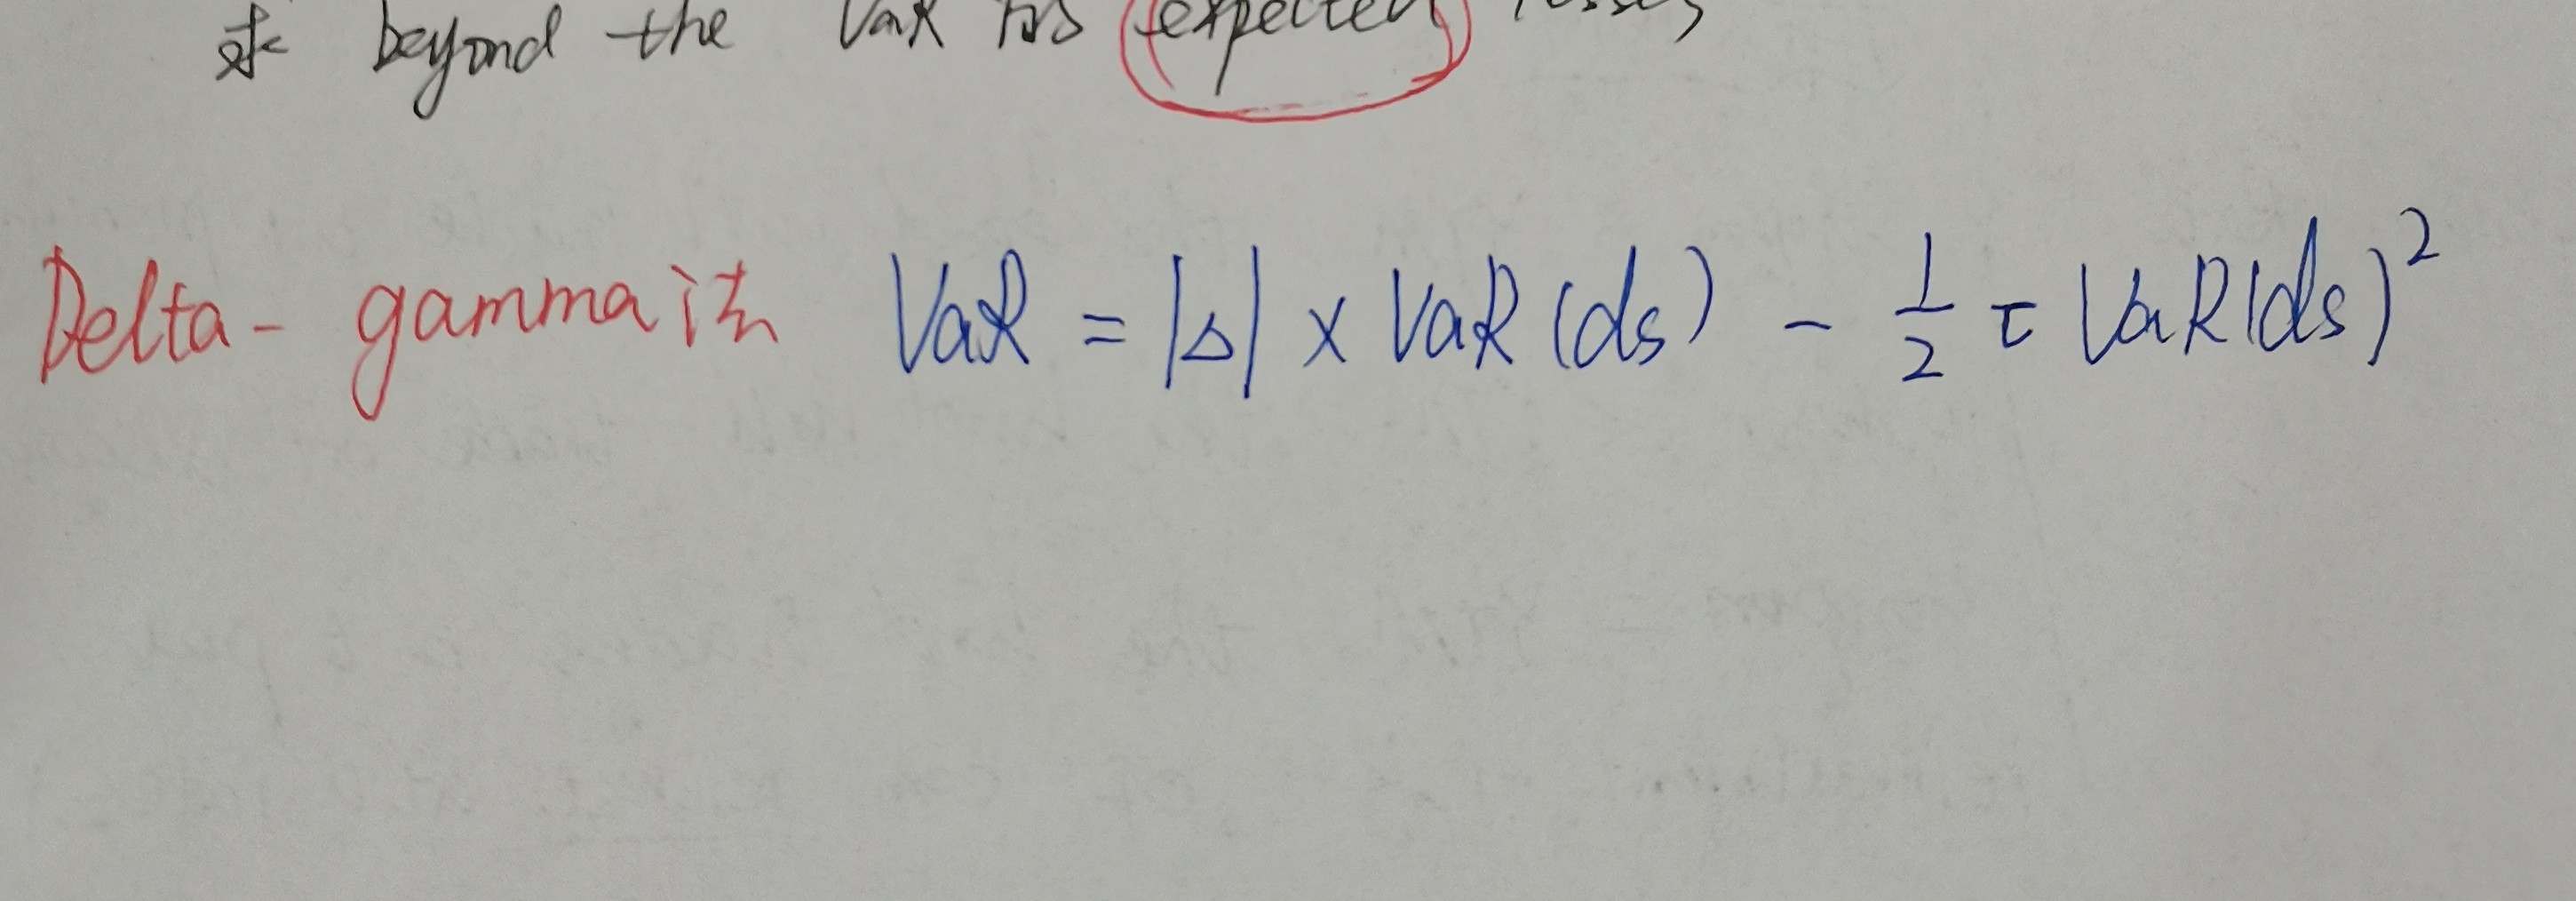 求 beyond the VaR 的 expected losses
Delta-gamma法 VaR = |Δ| × VaR (ds) - 1/2 τ VaR(ds)²